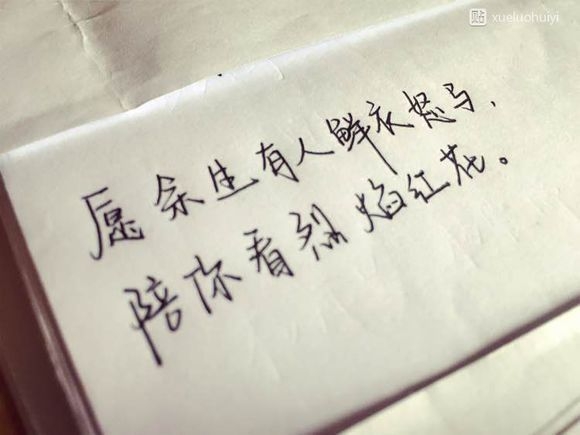 贴 xueluohuiyi
愿余生有人鲜衣怒马，
陪你看烈焰红花。